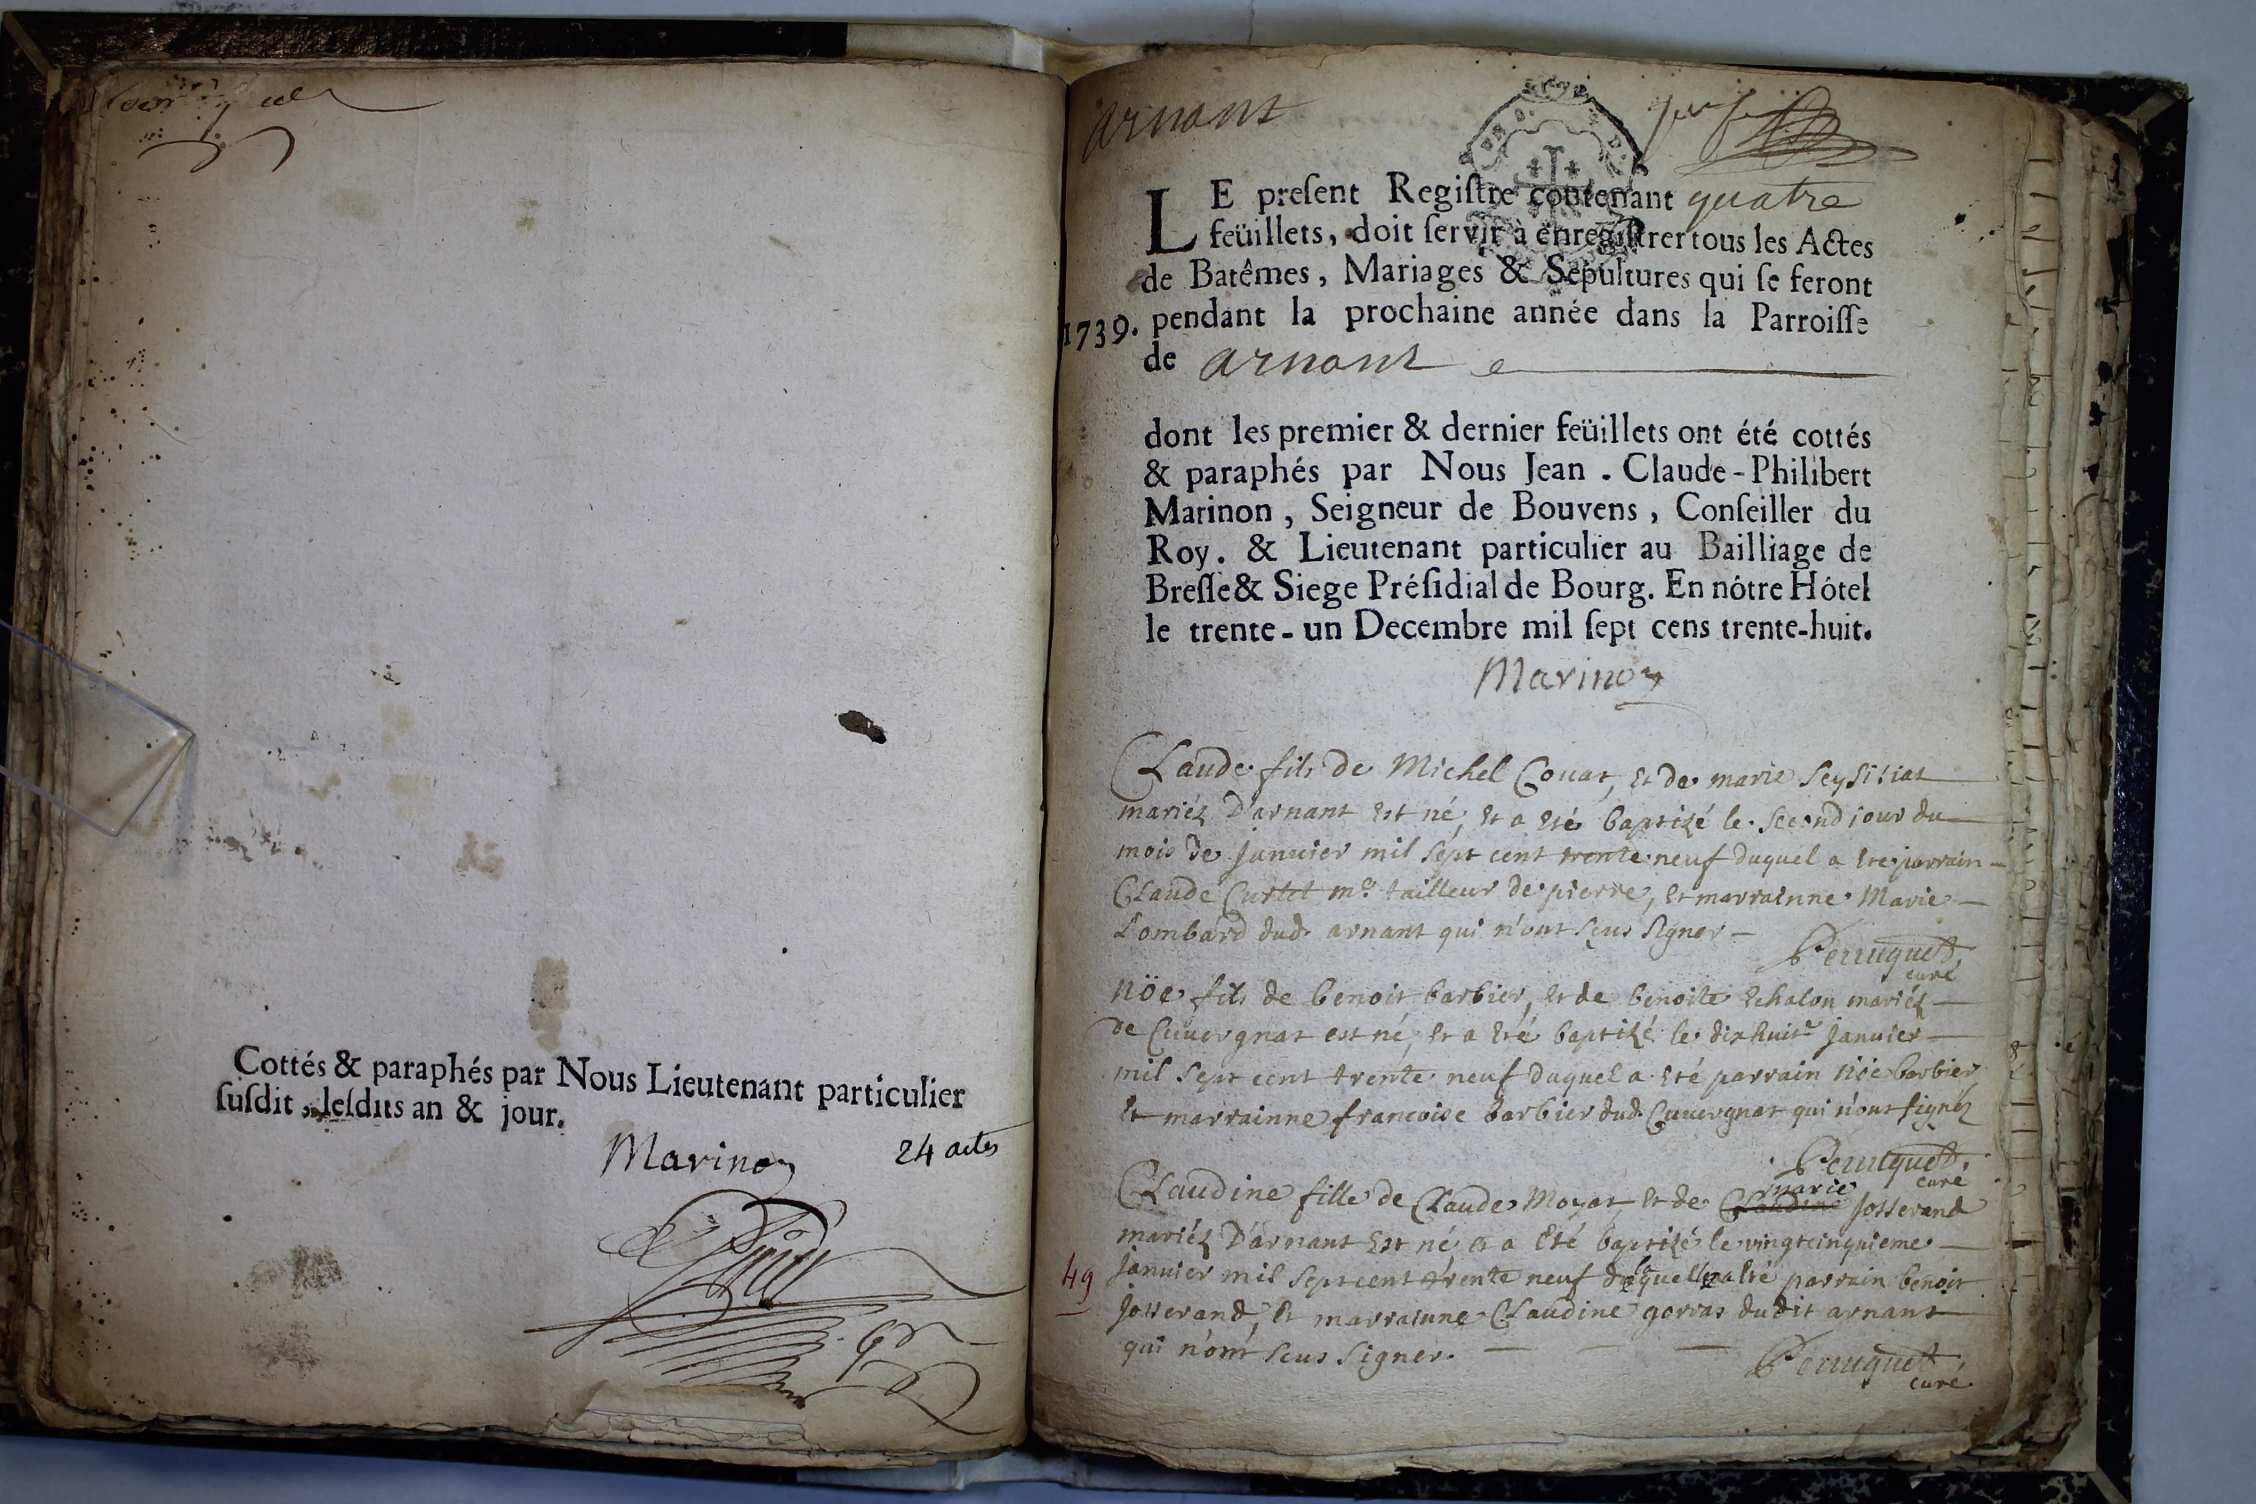 Cottés & paraphés par Nous Lieutenant particulier
susdit, lesdits an & jour.
Marinon
24 actes
arnant
LE preſent Regiſtre contenant quatre
feüillets, doit ſervir à enregiſtrer tous les Actes
de Batêmes, Mariages & Sepultures qui ſe feront
1739. pendant la prochaine année dans la Parroiſſe
de arnant
dont les premier & dernier feüillets ont été cottés
& paraphés par Nous Jean. Claude-Philibert
Marinon, Seigneur de Bouvens, Conſeiller du
Roy. & Lieutenant particulier au Bailliage de
Breſſe & Siege Préſidial de Bourg. En nôtre Hôtel
le trente-un Decembre mil ſept cens trente-huit.
Marinon
Claude fils de Michel Couat, et de marie Seysiriat
mariéz D'arnant est né, et a eté baptizé le second jour du
mois de janvier mil sept cent trente neuf duquel a ete parrain
Claude Curtet me tailleur de pierre, et marrainne Marie
Lombard dud. arnant qui n'ont sçus signer
Perruquet,
curé
nöe fils de benoit barbier, et de benoite Echalon mariéz
de Cuvergnat est né, et a eté baptizé le dixhuite janvier
mil sept cent trente neuf duquel a eté parrain nöe barbier
et marrainne francoise barbier dud. Cuvergnat qui n'ont signéz
Perruquet,
curé
Claudine fille de Claude Moyat, et de Claudine marie Josserand
mariéz D'arnant est né et a eté baptizé le vingtcinquieme
49 janvier mil sept cent trente neuf duquel a eté parrain benoit
Josserand, et marrainne Claudine gorras dudit arnant
qui n'ont sçus signer.
Perruquet
curé